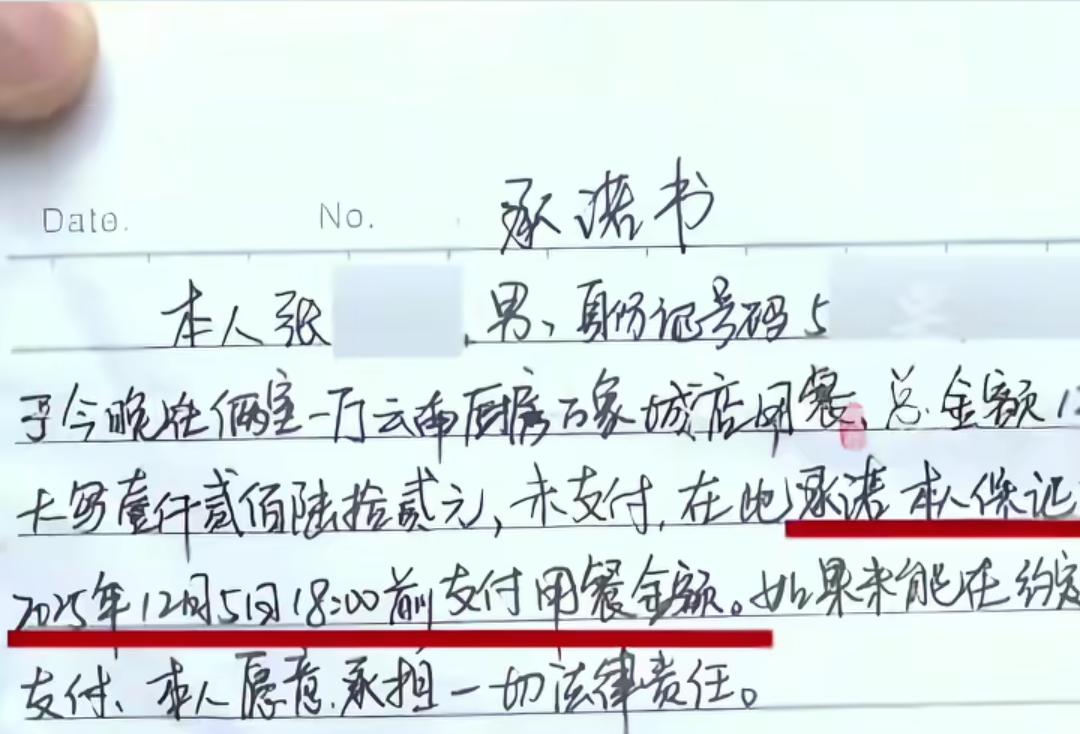 Date. No. 承诺书
本人张 ,男、身份证号码5
于今晚在俩室一厅云南厨房万家城店用餐、总金额12
大写壹仟贰佰陆拾贰元,未支付,在此承诺本人保证
2025年12月5日18:00前支付用餐金额。如果未能在约定
支付、本人愿意承担一切法律责任。